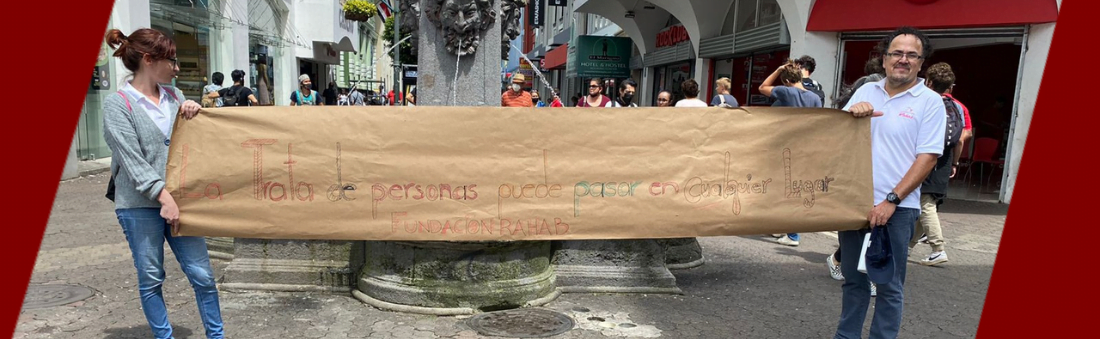 La Trata de personas puede pasar en cualquier Lugar
FUNDACIÓN RAHAB